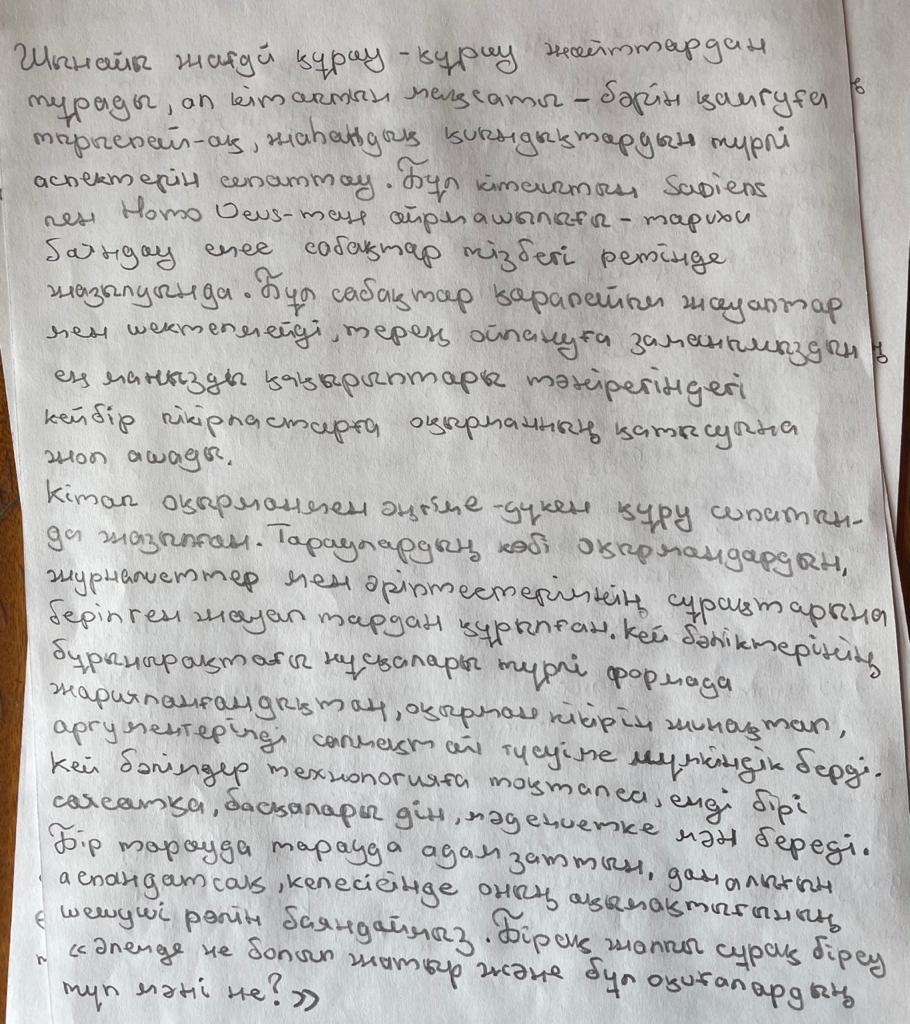 Шынайы жағдай құрау-құрау жайттардан
тұрады, ал кітаптын мақсаты - бәрін қамтуға
тырыспай-ақ, жаһандық қиындықтардын түрлі
аспектерін сипаттау. Бұл кітаптын Sapiens
пен Homo Deus-тан айырмашылығы - тарихи
баяндау емес сабақтар тізбегі ретінде
жазылуында. Бұл сабақтар қарапайым жауаптар
мен шектелмейді, терең ойлануға заманымыздын
ең манызды тақырыптары төңірегіндегі
кейбір пікірластарға оқырманның қатысуына
жол ашады.
Кітап оқырманмен әңгіме-дүкен құру сипатын-
да жазылған. Тараулардың көбі оқырмандардын,
журналистер мен әріптестерімнің сұрақтарына
берілген жауаптардан құрылған. Кей бөліктерінің
бұрынырақтағы нұсқалары түрлі формада
жарияланғандықтан, оқырман пікірін жинақтап,
аргументерімді салмақтай түсуіме мүмкіндік берді.
Кей бөлімдер технологияға тоқталса, енді бірі
саясатқа, басқалары дін, мәдениетке мән береді.
Бір тарауда тарауда адамзаттын, даналығын
аспандатсақ, келесісінде оның ақымақтығының
шешуші рөлін баяндаймыз. Бірақ жалпы сұрақ біреу
«әлемде не болып жатыр және бұл оқиғалардың
түп мәні не?»